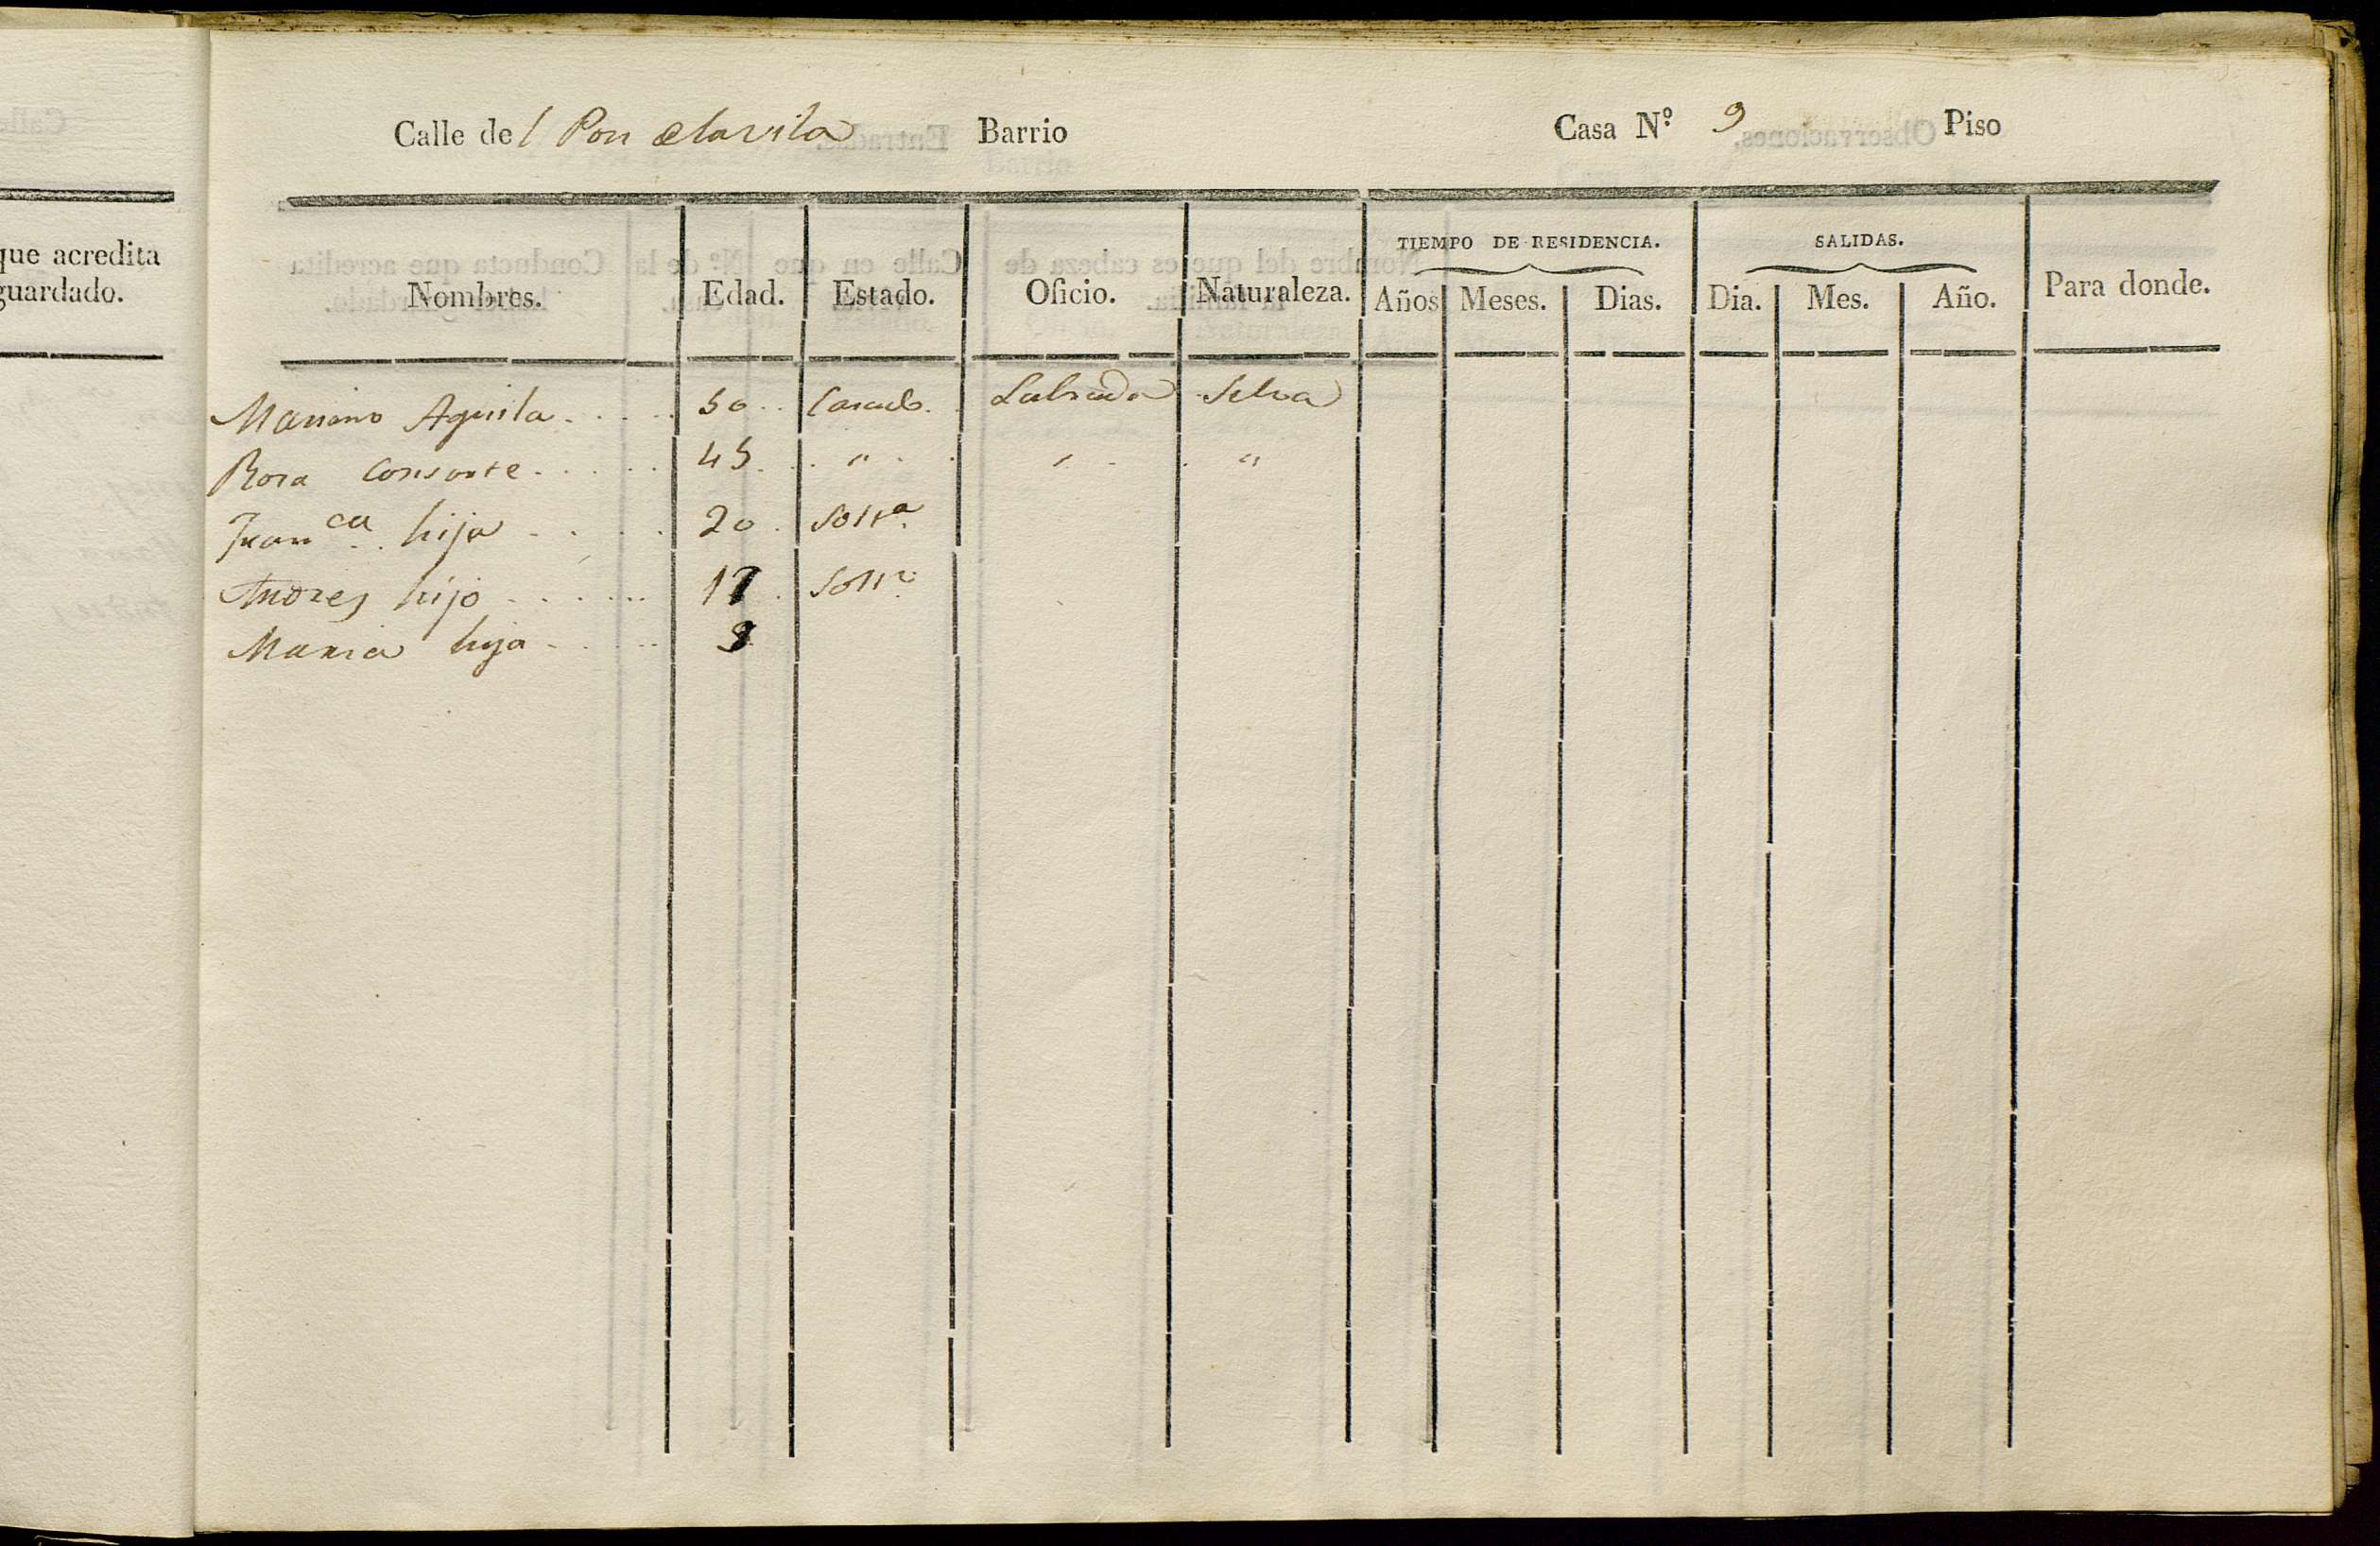 que acredita
guardado.
Calle del Pou de la vila Barrio Casa N.º 9 Piso
TIEMPO DE RESIDENCIA. SALIDAS.
Nombres. Edad. Estado. Oficio. Naturaleza. Años Meses. Dias. Dia. Mes. Año. Para donde.
Mariano Aguila 50 Casado Labrador Selva
Rosa Consorte 45 " " "
Fran.ca hija 20 Solt.a
Andres hijo 17 Solt.o
Maria hija 9